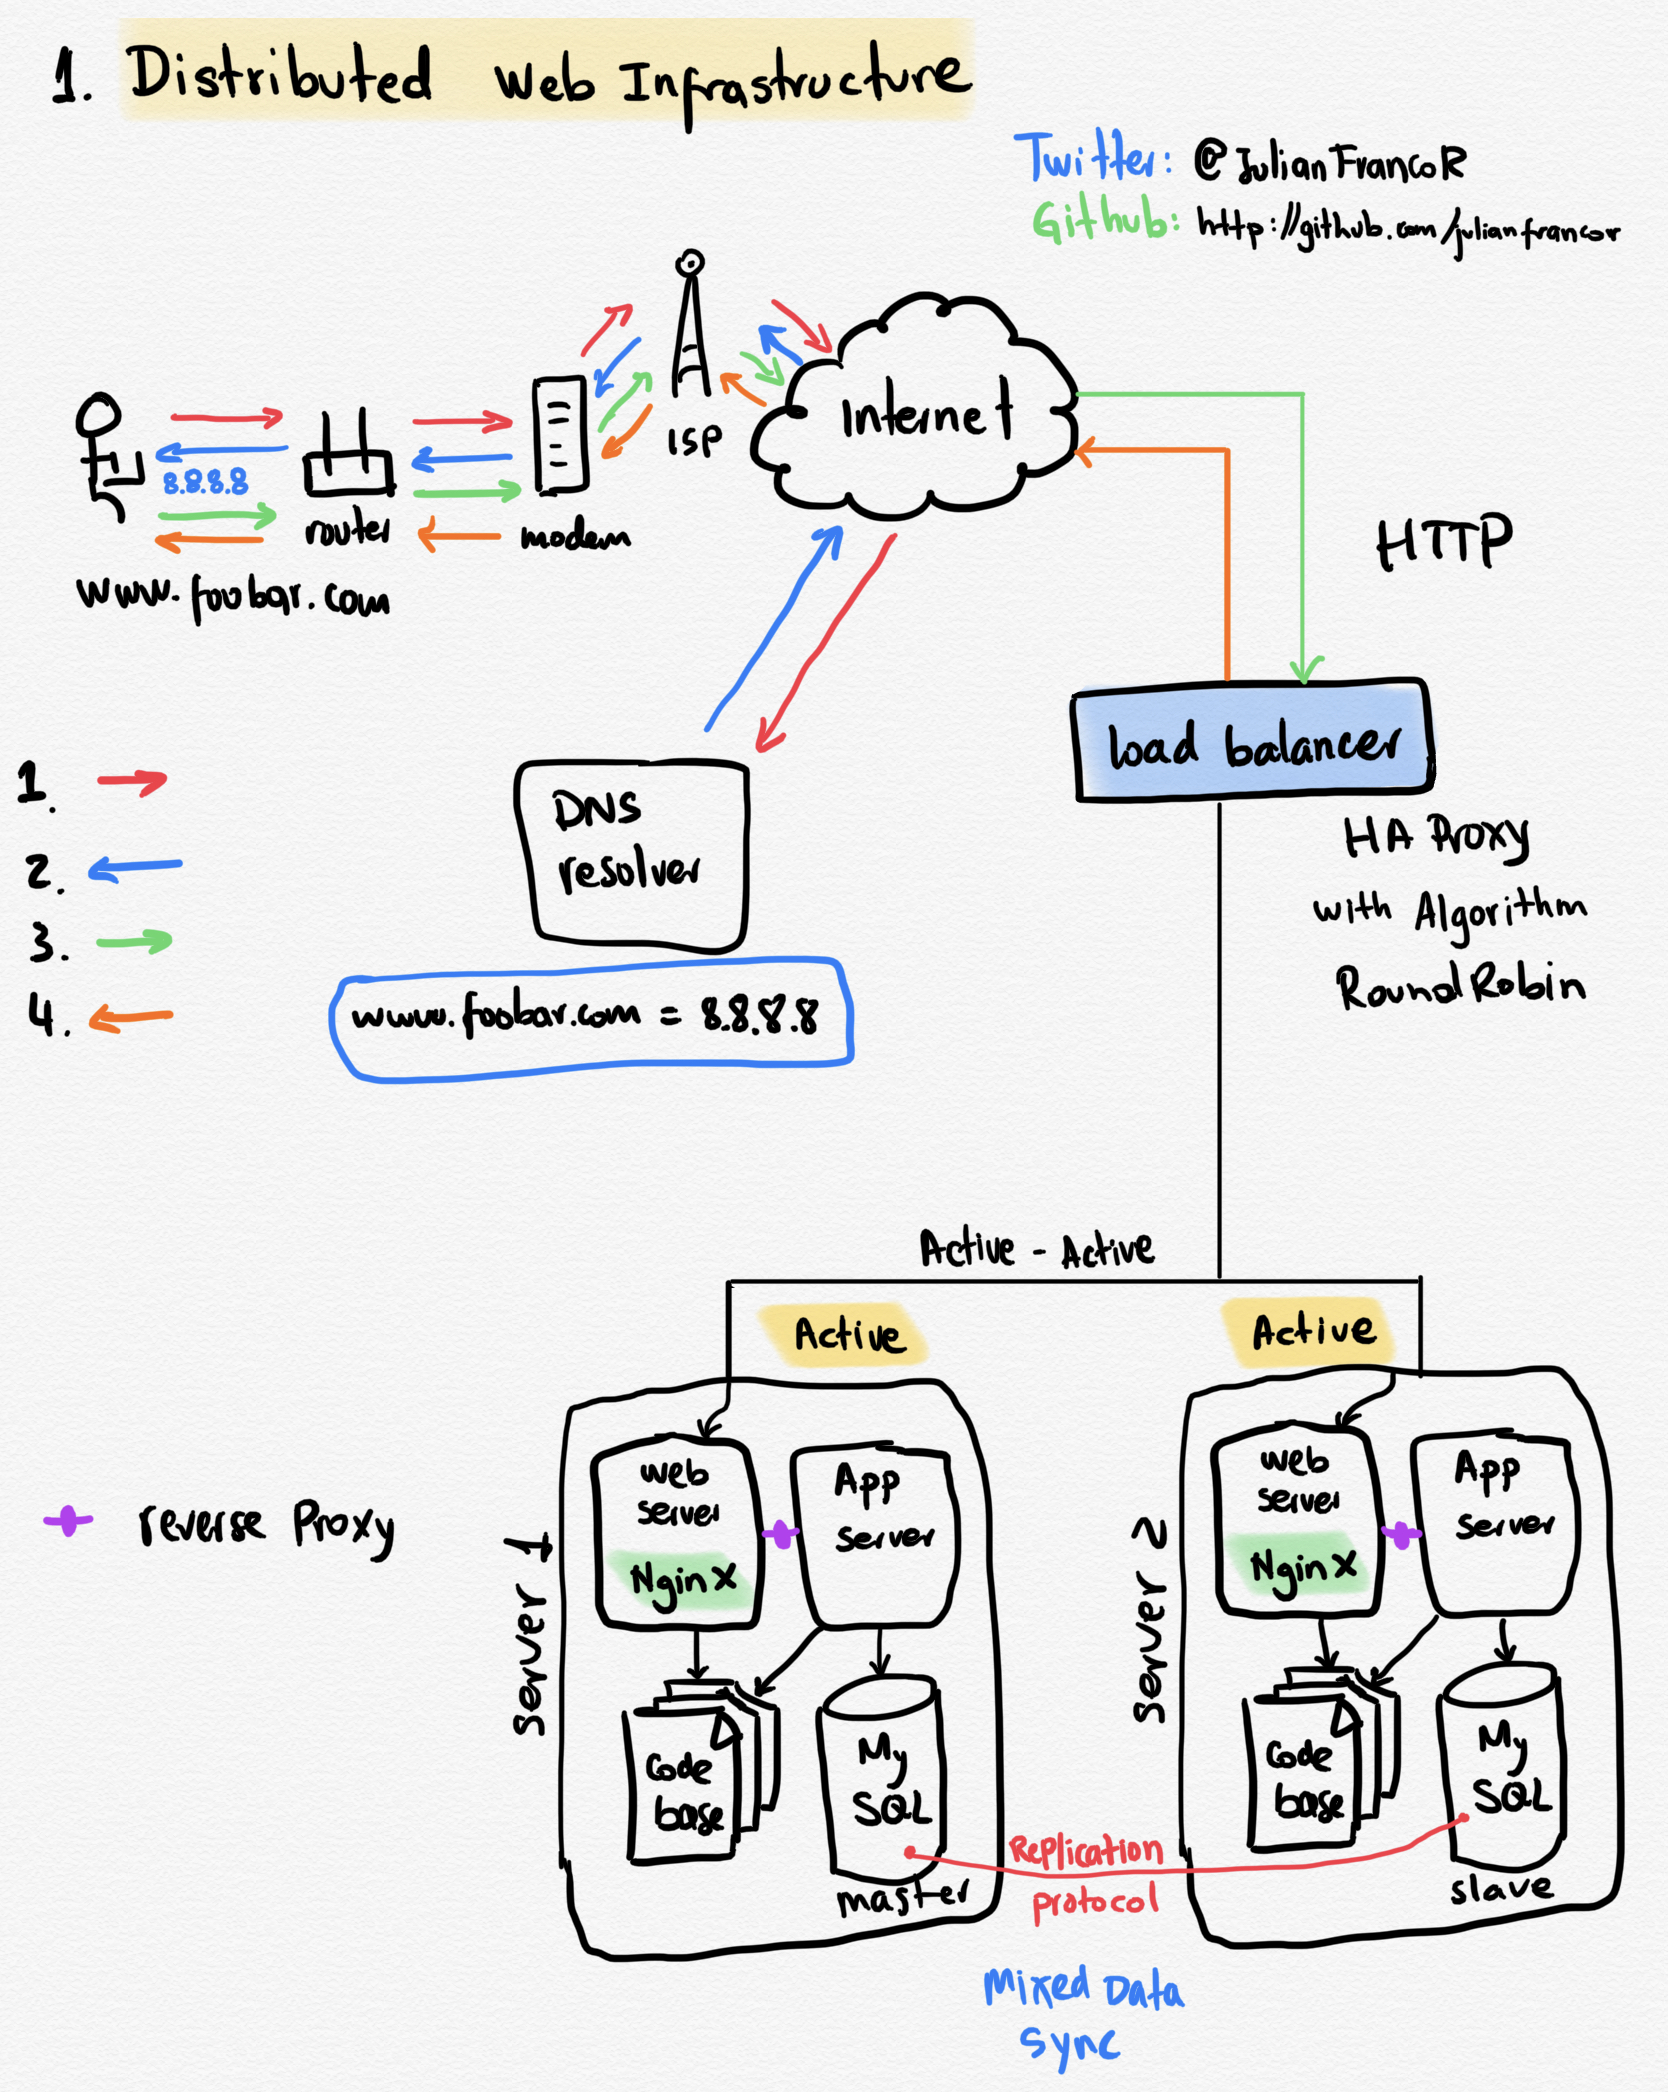 1. Distributed Web Infrastructure
Twitter: @JulianFrancoR
Github: http://github.com/julianfrancor
Internet
ISP
8.8.8.8
router
modem
www.foobar.com
HTTP
load balancer
HA Proxy
with Algorithm
RoundRobin
1.
2.
3.
4.
DNS
resolver
www.foobar.com = 8.8.8.8
Active - Active
Active
Active
reverse Proxy
Server 1
web
server
Nginx
App
server
Code
base
My
SQL
master
Server 2
web
server
Nginx
App
server
Code
base
My
SQL
slave
Replication
protocol
Mixed Data
Sync